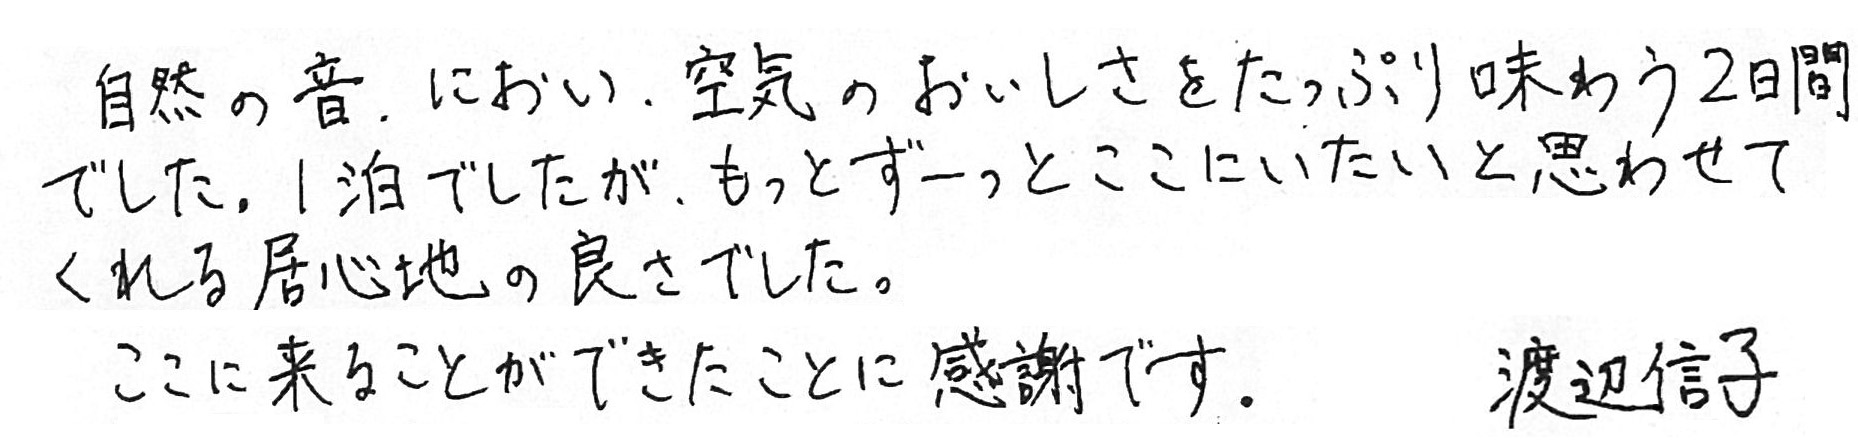 自然の音、におい、空気のおいしさをたっぷり味わう2日間
でした。1泊でしたが、もっとずーっとここにいたいと思わせて
くれる居心地の良さでした。
ここに来ることができたことに感謝です。 渡辺信子